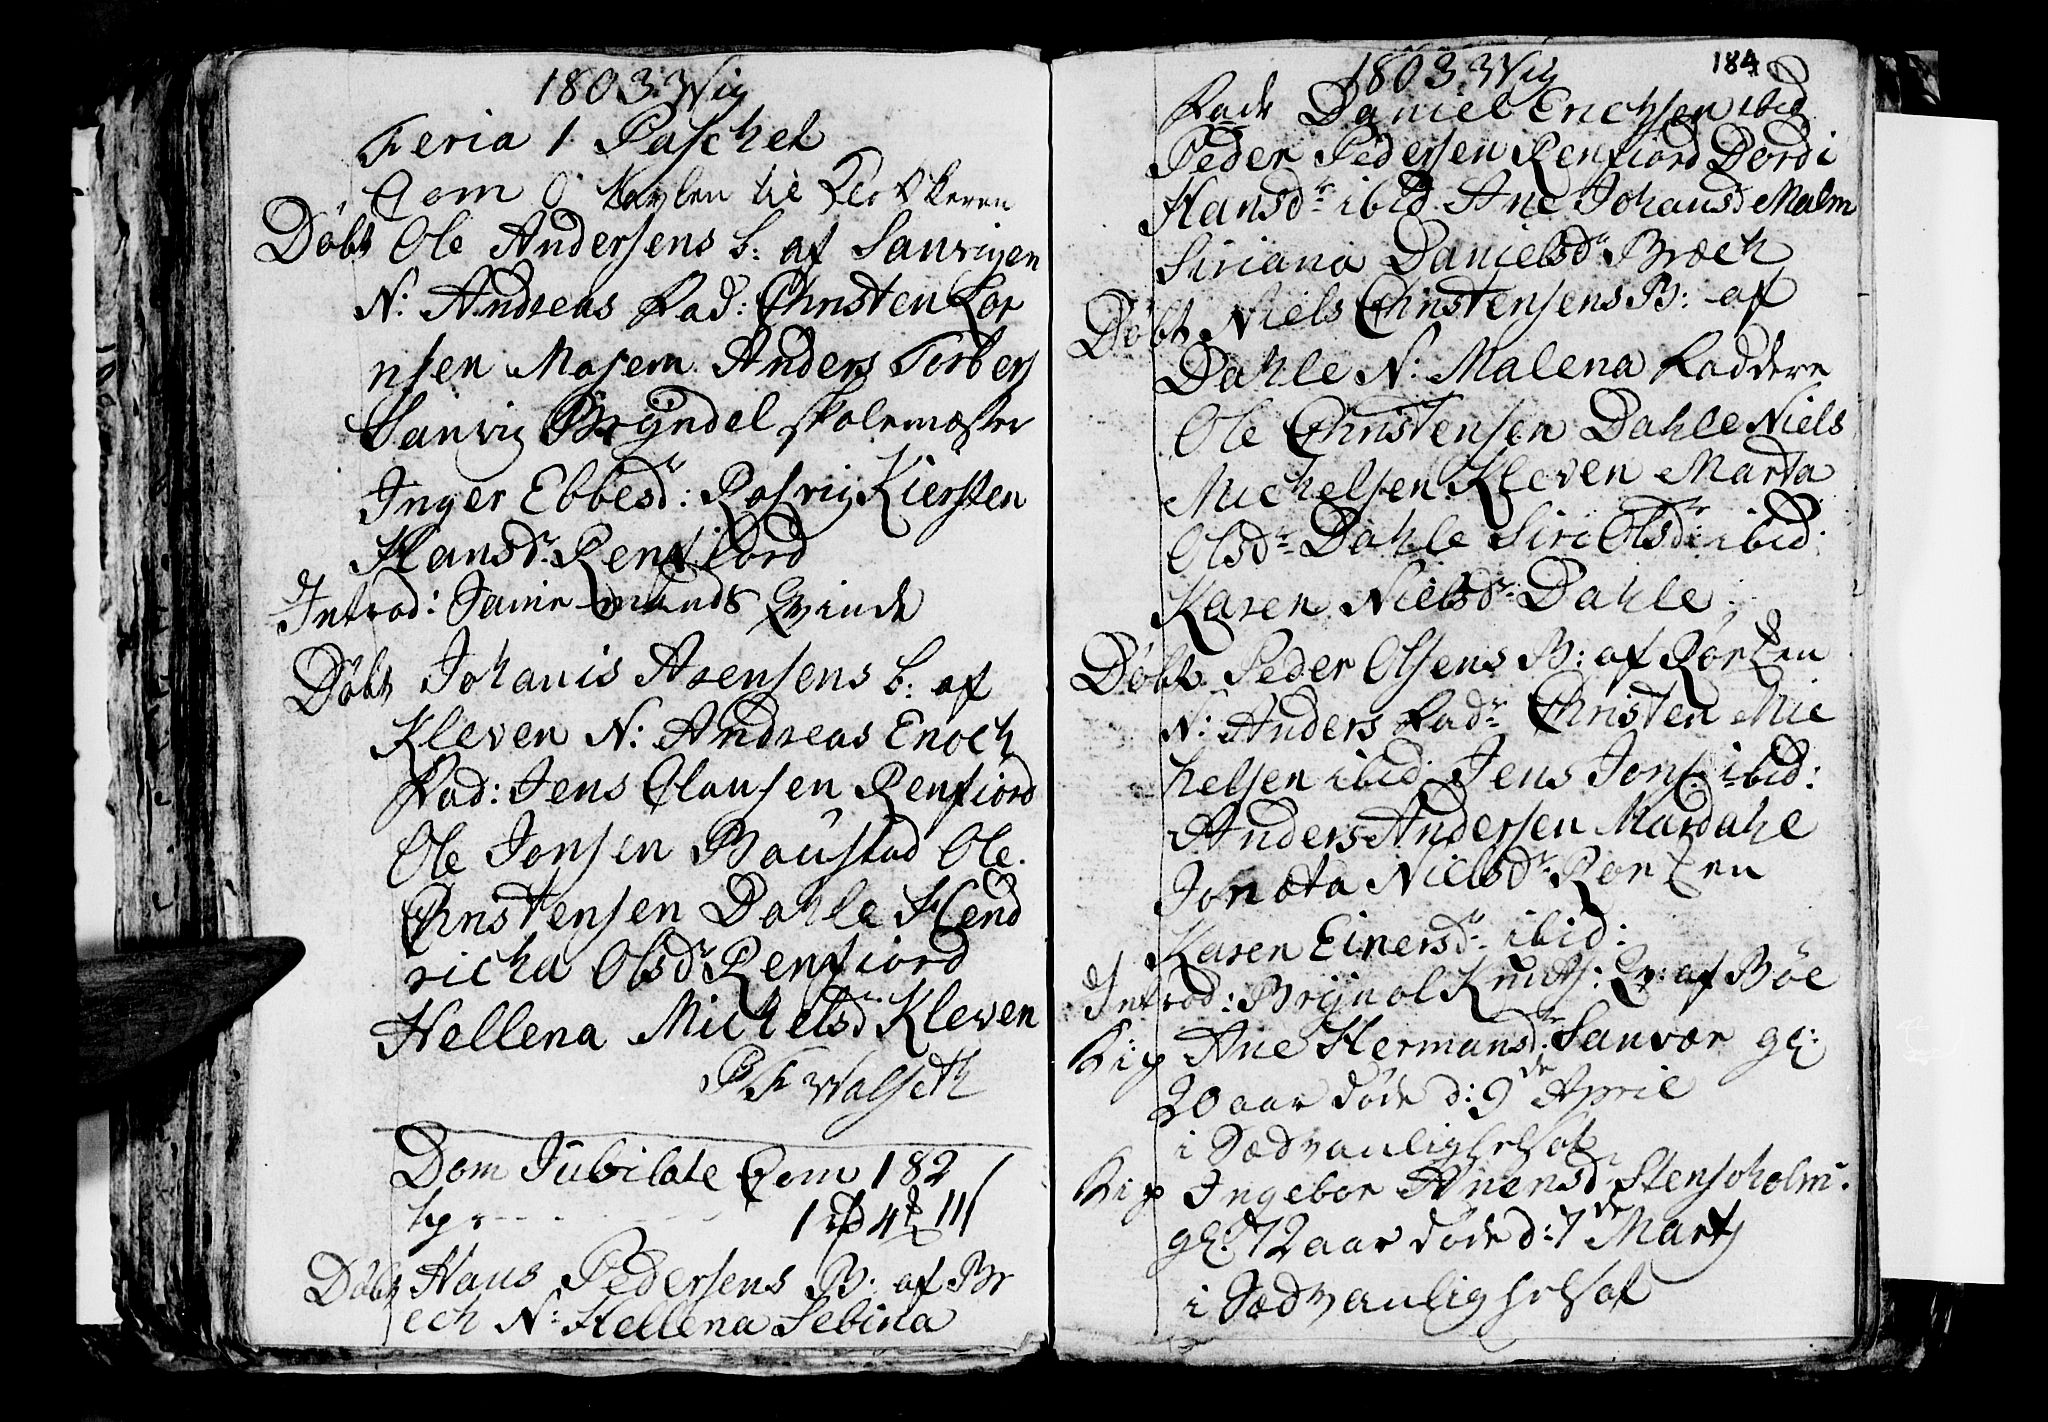 1803 Wig
Feria 1 Paschel
Com 0 Tavlen til Kirkkeren
Døbt Ole Andersens b: af Sanvigen
N: Andreas Fad: Christen Lor
nsen Mosem Anders Torbers
Sanvig Bryndel skolemæster
Inger Ebbesdr: Rosvig Kiersten
Hansdr: Renfiord
Introd: Samme mands Qvinde
Døbt Johanis Arensens b: af
Kleven N: Andreas Enoch
Fad: Jens Clausen Renfiord
Ole Jonsen Boustad Ole
Christensen Dahle Hend
richa Olsdr Renfiord
Hellena Michelsdr Kleven
P F Walseth
Dom Jubilate Com 182
1 rd 4 ₶ 111
Døbt Hans Pedersens B: af Br
ech N: Hellena Sebina
1803 Wig 184
Fadr Daniel Erichsen ibid
Peder Pedersen Renfiord Dordi
Hansdr ibid Ane Johansd Malm
Siriana Danielsdr Bræch
Døbt Niels Christensens B: af
Dahle N: Malena Faddere
Ole Christensen Dahle Niels
Michelsen Kleven Marta
Olsdr Dahle Siri Olsdr: ibid:
Karen Nielsdr: Dahle
Døbt Peder Olsens B: af Rørten
N: Anders Fadr: Christen Mic
helsen ibid: Jens Jons: ibid:
Anders Andersen Mardahl
Jonæta Nielsdr Rørten
Karen Einersdr: ibid:
Introd: Brynol Knuds: Qv: af Bøe
Ane Hermansdr: Sanvær gl:
20 aar døde d: 9de April
i Sædvanlig helsot
Ingebor Anensdr Stensoholm:
gl: 72 aar døde d: 7de Marty
i Sædvanlig helsot